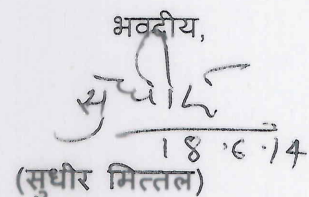 भवदीय,
सुधीर
18.6.14
(सुधीर मित्तल)